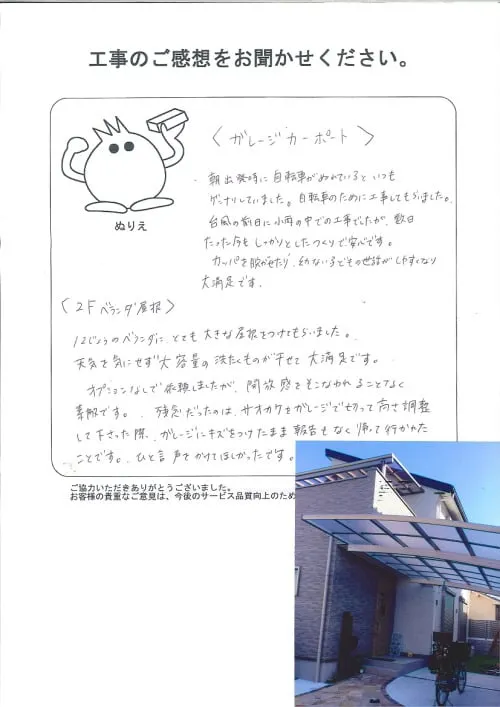 工事のご感想をお聞かせください。
〈ガレージカーポート〉
ぬりえ
朝出発時に自転車がぬれているといつも
ゲンナリしていました。自転車のために工事してもらいました。
台風の前日に小雨の中での工事でしたが、数日
たった今も しっかりとしたつくりで安心です。
カッパを脱がせたり、幼ない子どもの世話がしやすくなり
大満足です。
〈2Fベランダ屋根〉
12じょうのベランダに、とても大きな屋根をつけてもらいました。
天気を気にせず大容量の洗たくものが干せて大満足です。
オプションなしで依頼しましたが、開放感をそこなわれることなく
素敵です。 残念だったのは、サオカケをガレージで切って高さ調整
して下さった際、ガレージにキズをつけたまま報告もなく帰って行かれた
ことです。ひと言声をかけてほしかったです。
ご協力いただきありがとうございました。
お客様の貴重なご意見は、今後のサービス品質向上のため